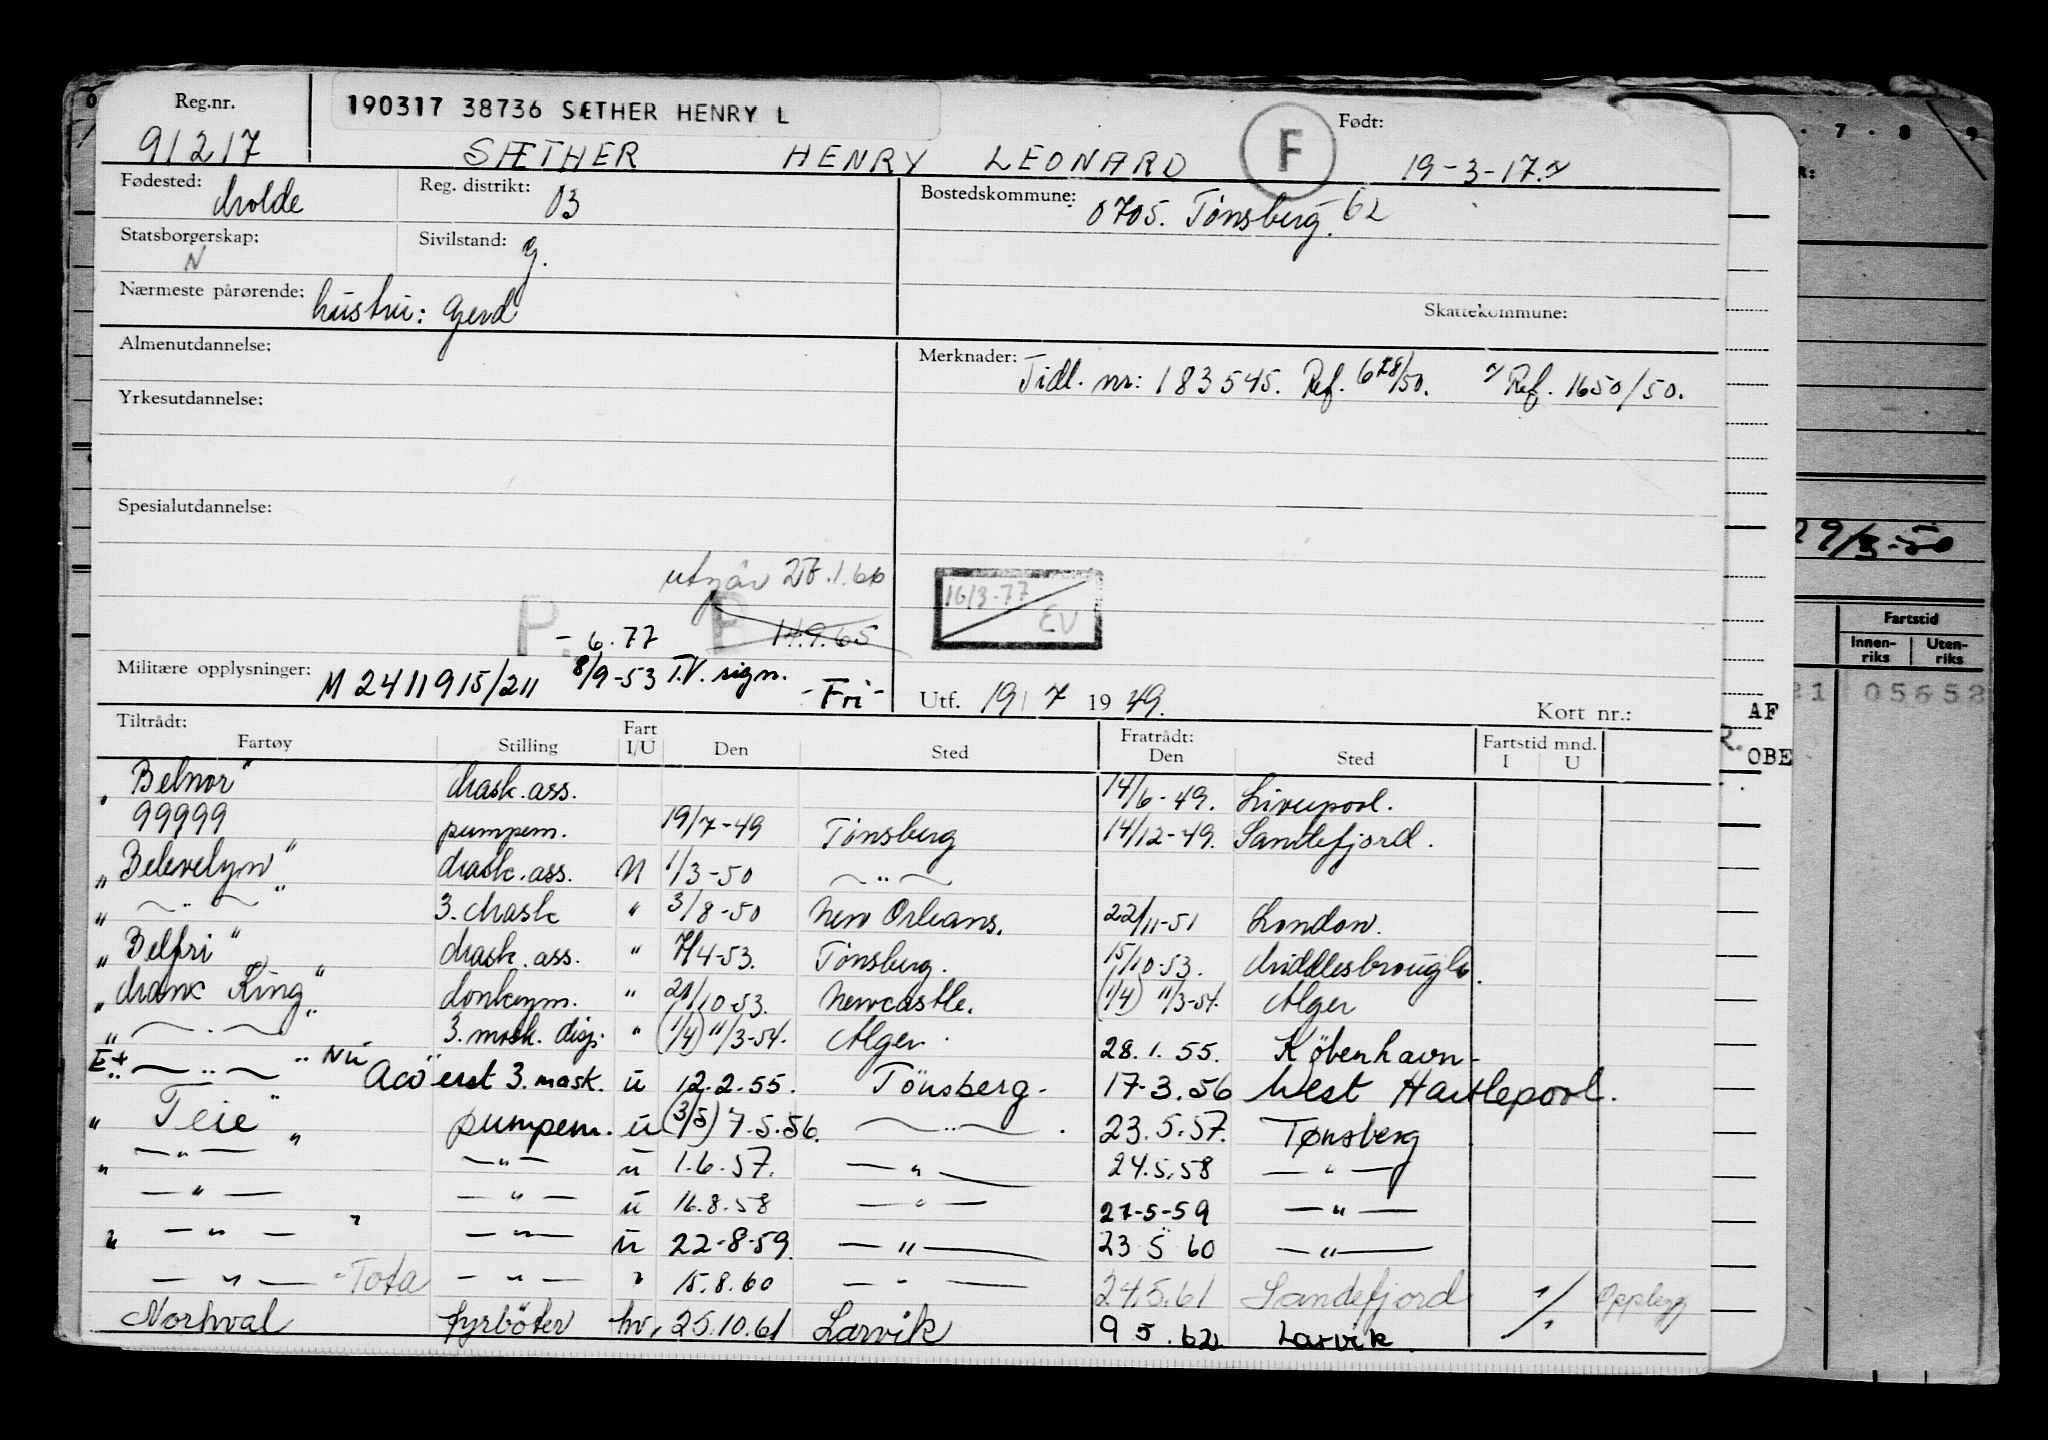 Reg.nr. 190317 38736 SÆTHER HENRY L F Født:
91217 SÆTHER HENRY LEONARD 19-3-17.
Fødested: Molde Reg. distrikt: 03 Bostedskommune: 0705. Tønsberg. 62
Statsborgerskap: N Sivilstand: g.
Nærmeste pårørende: hustru: Gerd Skattekommune:
Almenutdannelse: Merknader: Tidl. nr: 183545. Ref. 628/50. Ref. 1650/50.
Yrkesutdannelse:
Spesialutdannelse:
utgår 1.66
16/3-77 EV
P. - 6.77 F 14.9.65
Militære opplysninger: M 2411915/211 8/9-53 T.V. sign. - Fri - Utf. 19/7 1949. Kort nr.:
Tiltrådt: Fartøy Stilling Fart I/U Den Sted Fratrådt: Den Sted Fartstid mnd. I U
"Belnor" Mask. ass. 14/6-49. Liverpool.
99999 pumpem. 19/7-49 Tønsberg 14/12-49. Sandefjord.
"Belevelyn" Mask. ass. N 1/3-50 — " —
" — " — " 3. Mask " 3/8-50 New Orleans. 22/11-51 London.
"Belfri" Mask. ass. " 7/4-53. Tønsberg. 15/10-53. Middlesbrough.
"Manx King" donkeym. " /10-53. Newcastle. (1/4) 11/3-54. Alger
" — " — " 3. mask. disp. " (1/4) 11/3-54. Alger. 28.1.55. København-
E+ — " — " Nu Aco erst 3. mask. u 12.2.55. Tönsberg. 17-3.56 West Hartlepool.
" Teie " pumpem. u (3/5) 7.5.56. — " — . 23.5.57. Tønsberg
" — " — " — " — u 1.6.57. — " — 24.5.58 — " —
— " — — " — u 16.8.58 — " — 27-5-59 — " —
" — " — " — " — u 22-8-59. — " — 23 5 60 — " —
— " — - Tota — " — " 15.8.60 — " — 24.5.61 Sandefjord ./. Opplegg
Norhval fyrböter hv, 25.10.61 Larvik 9 5. 62 Larvik.
7 8 9
R:
29/3-50
Fartstid
Innenriks Utenriks
21 05652
AF
R. OBE